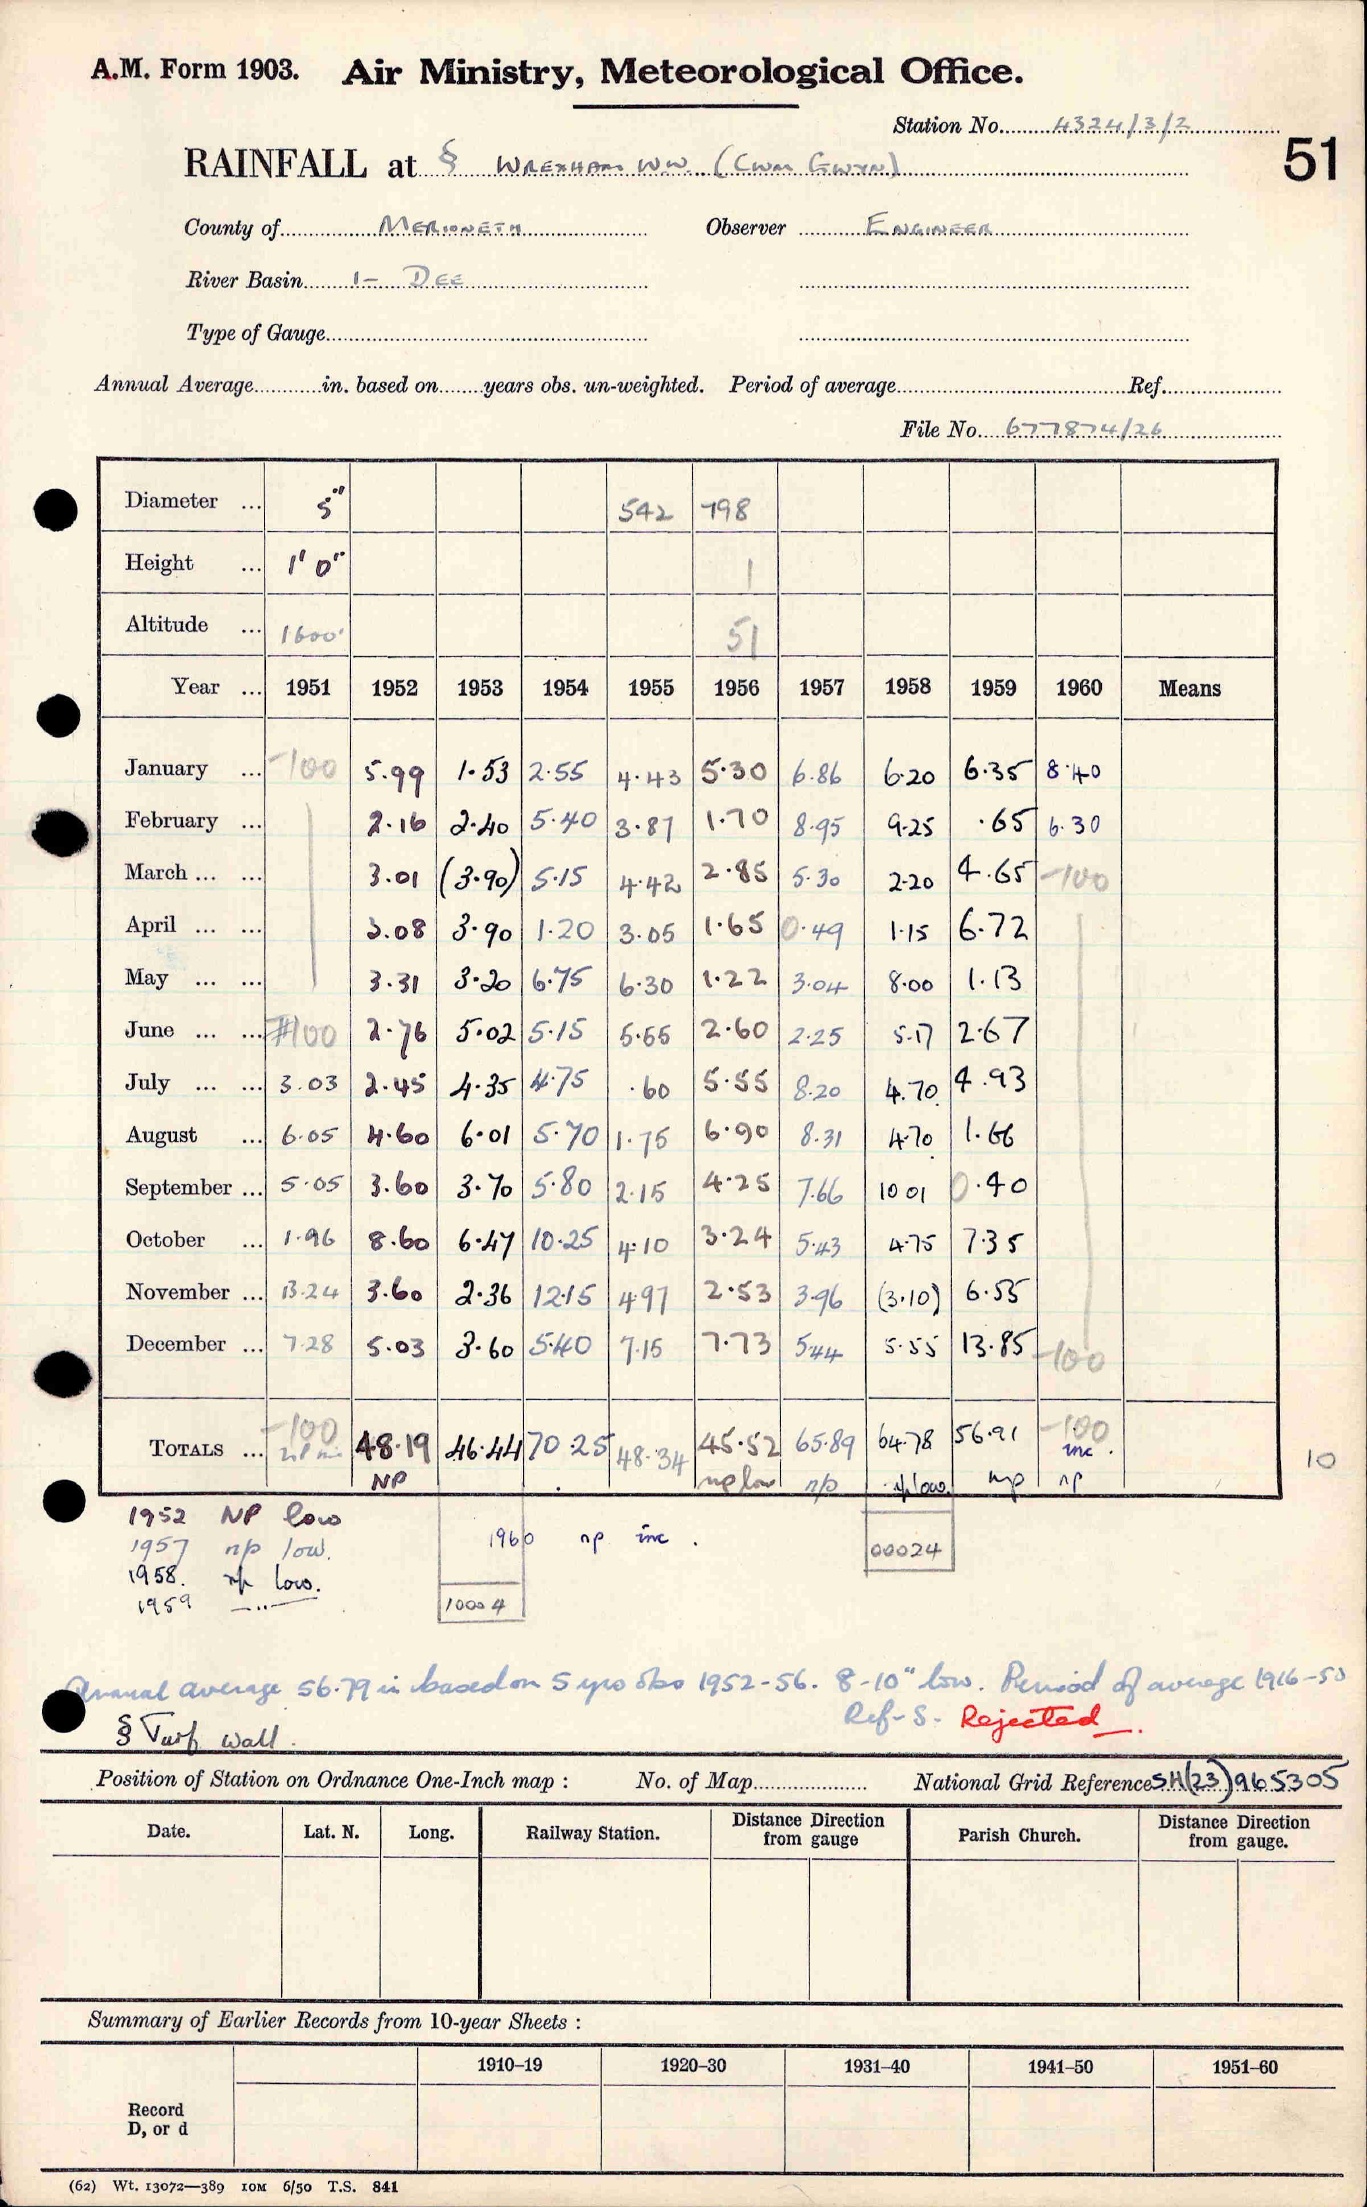 A.M. Form 1903. Air Ministry, Meteorological Office.
Station No. 4324/3/2
51
RAINFALL at § WREXHAM W.W. (CWM GWYN)
County of MERIONETH Observer ENGINEER
River Basin 1- DEE
Type of Gauge
Annual Average in. based on years obs. un-weighted. Period of average Ref.
File No. 677874/26
Diameter ... 5" 542 798
Height ... 1' 0" 1
Altitude ... 1600' 51
Year ... 1951 1952 1953 1954 1955 1956 1957 1958 1959 1960 Means
January ... -100 5.99 1.53 2.55 4.43 5.30 6.86 6.20 6.35 8.40
February ... 2.16 2.40 5.40 3.87 1.70 8.95 9.25 .65 6.30
March ... ... 3.01 (3.90) 5.15 4.42 2.85 5.30 2.20 4.65 -100
April ... ... 3.08 3.90 1.20 3.05 1.65 0.49 1.15 6.72
May ... ... 3.31 3.20 6.75 6.30 1.22 3.04 8.00 1.13
June ... ... -100 2.76 5.02 5.15 5.55 2.60 2.25 5.17 2.67
July ... ... 3.03 2.45 4.35 4.75 .60 5.55 8.20 4.70 4.93
August ... 6.05 4.60 6.01 5.70 1.75 6.90 8.31 4.70 1.66
September ... 5.05 3.60 3.70 5.80 2.15 4.25 7.66 10 01 0.40
October ... 1.96 8.60 6.47 10.25 4.10 3.24 5.43 4.75 7.35
November ... 13.24 3.60 2.36 12.15 4.97 2.53 3.96 (3.10) 6.55
December ... 7.28 5.03 3.60 5.40 7.15 7.73 5.44 5.55 13.85 -100
TOTALS ... -100 48.19 46.44 70.25 48.34 45.52 65.89 64.78 56.91 -100
inc.
NP np low np np low. np np
10
1952 NP low
1957 np low.
1958. np low.
1959 —..—
1960 np inc.
00024
10004
Annual average 56.79 in based on 5 yrs obs 1952-56. 8-10" low. Period of average 1916-50
Ref- S- Rejected.
§ Turf wall.
Position of Station on Ordnance One-Inch map : No. of Map National Grid Reference SH(23)965305
Date. Lat. N. Long. Railway Station. Distance Direction from gauge Parish Church. Distance Direction from gauge.
Summary of Earlier Records from 10-year Sheets :
1910–19 1920–30 1931–40 1941–50 1951–60
Record
D, or d
(62) Wt. 13072—389 10M 6/50 T.S. 841